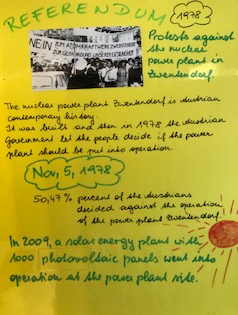 REFERENDUM
1978
Protests against
the nuclear
power plant in
Zwentendorf.
NEIN ZUM ATOMKRAFTWERK ZWENTENDORF
ZUR GEFÄHRDUNG UNSERER GESUNDHEIT
The nuclear power plant Zwentendorf is Austrian
contemporary history.
It was built and then in 1978 the Austrian
Government let the people decide if the power
plant should be put into operation.
Nov, 5, 1978
50,47% percent of the Austrians
decided against the operation
of the power plant Zwentendorf.
In 2009, a solar energy plant with
1000 photovoltaic panels went into
operation at the power plant site.